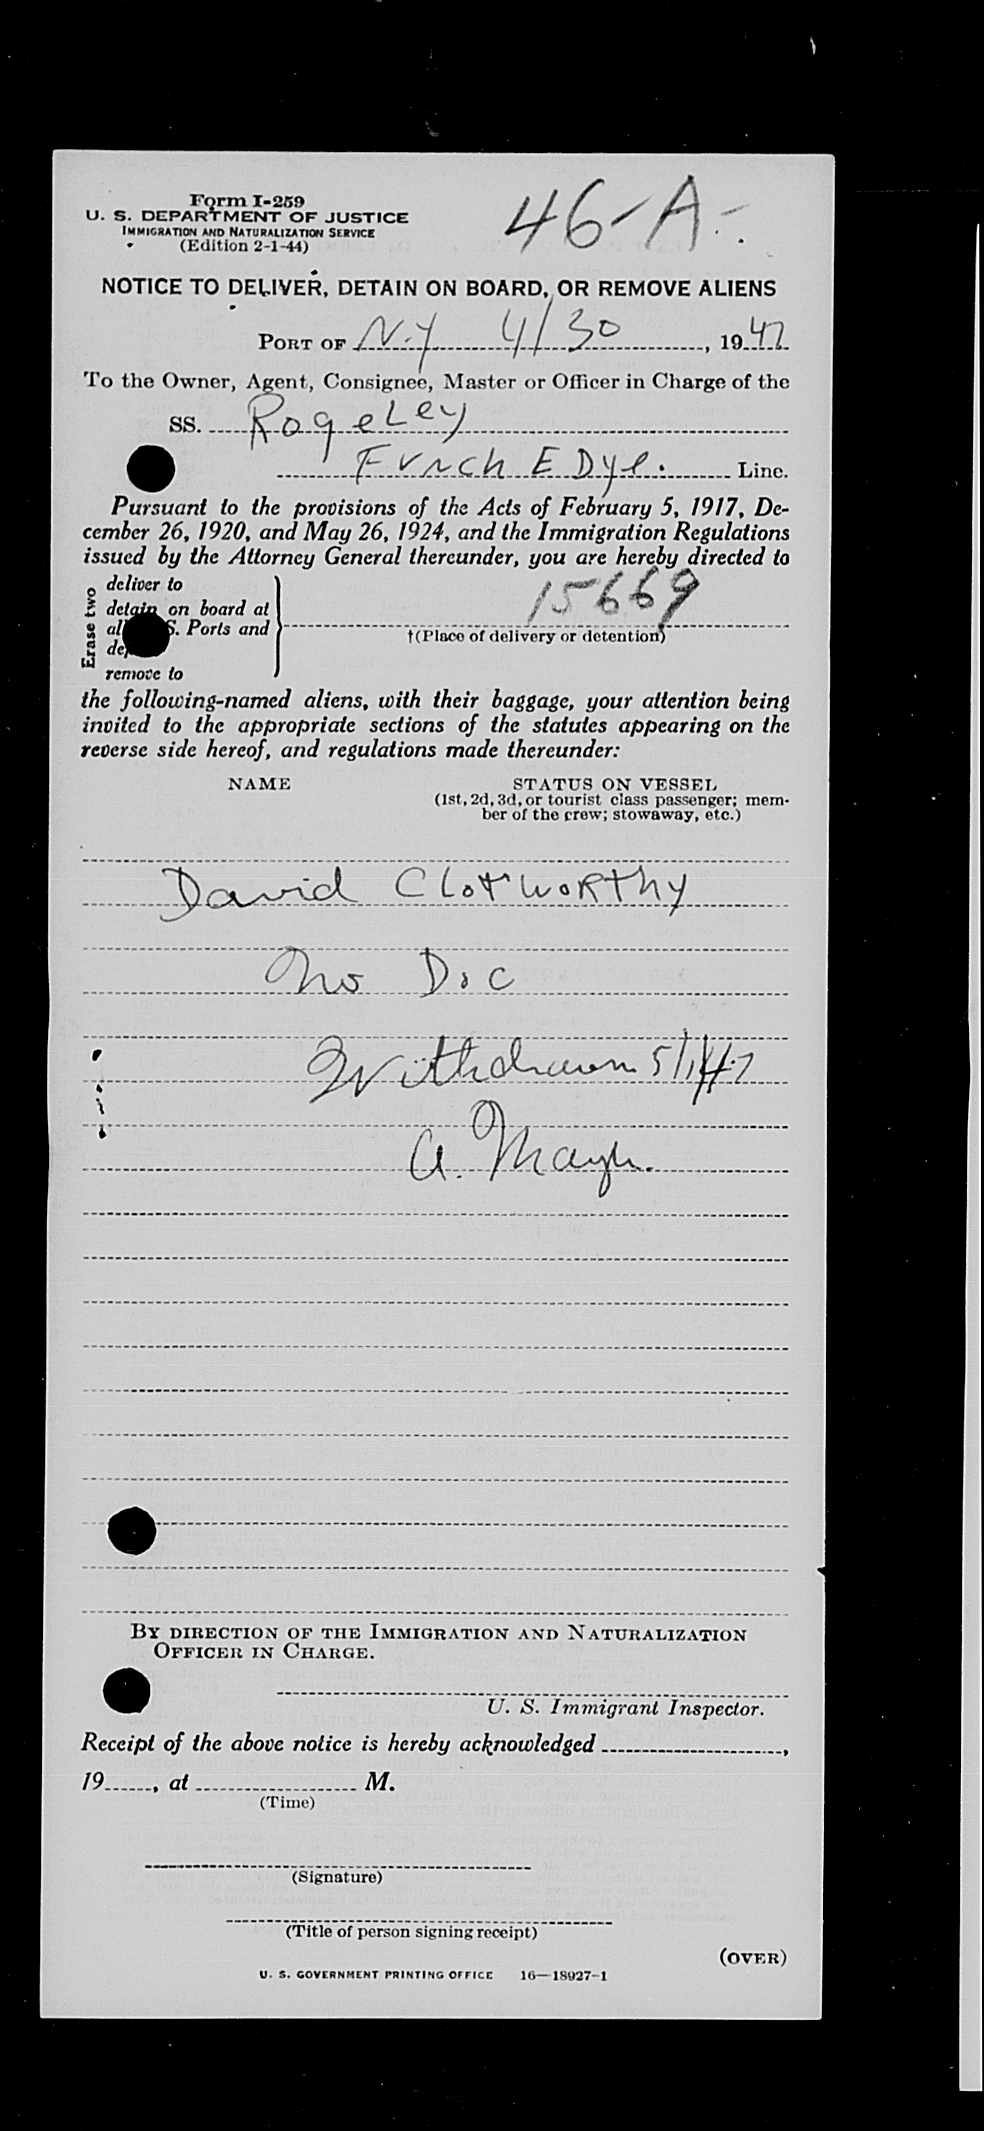 Form I-259
U. S. DEPARTMENT OF JUSTICE
IMMIGRATION AND NATURALIZATION SERVICE
(Edition 2-1-44)
46-A-
NOTICE TO DELIVER, DETAIN ON BOARD, OR REMOVE ALIENS
PORT OF N.Y 4/30, 1947
To the Owner, Agent, Consignee, Master or Officer in Charge of the
SS. RogeLey
Furnch E Dye. Line.
Pursuant to the provisions of the Acts of February 5, 1917, De-
cember 26, 1920, and May 26, 1924, and the Immigration Regulations
issued by the Attorney General thereunder, you are hereby directed to
Erase two
deliver to
detain on board at
al S. Ports and
de
remove to
15669
†(Place of delivery or detention)
the following-named aliens, with their baggage, your attention being
invited to the appropriate sections of the statutes appearing on the
reverse side hereof, and regulations made thereunder:
NAME STATUS ON VESSEL
(1st, 2d, 3d, or tourist class passenger; mem-
ber of the crew; stowaway, etc.)
David Clotworthy
No Doc
Withdrawn 5/1/47
A.
BY DIRECTION OF THE IMMIGRATION AND NATURALIZATION
OFFICER IN CHARGE.
U. S. Immigrant Inspector.
Receipt of the above notice is hereby acknowledged ,
19 , at M.
(Time)
(Signature)
(Title of person signing receipt)
(OVER)
U. S. GOVERNMENT PRINTING OFFICE 16—18927-1